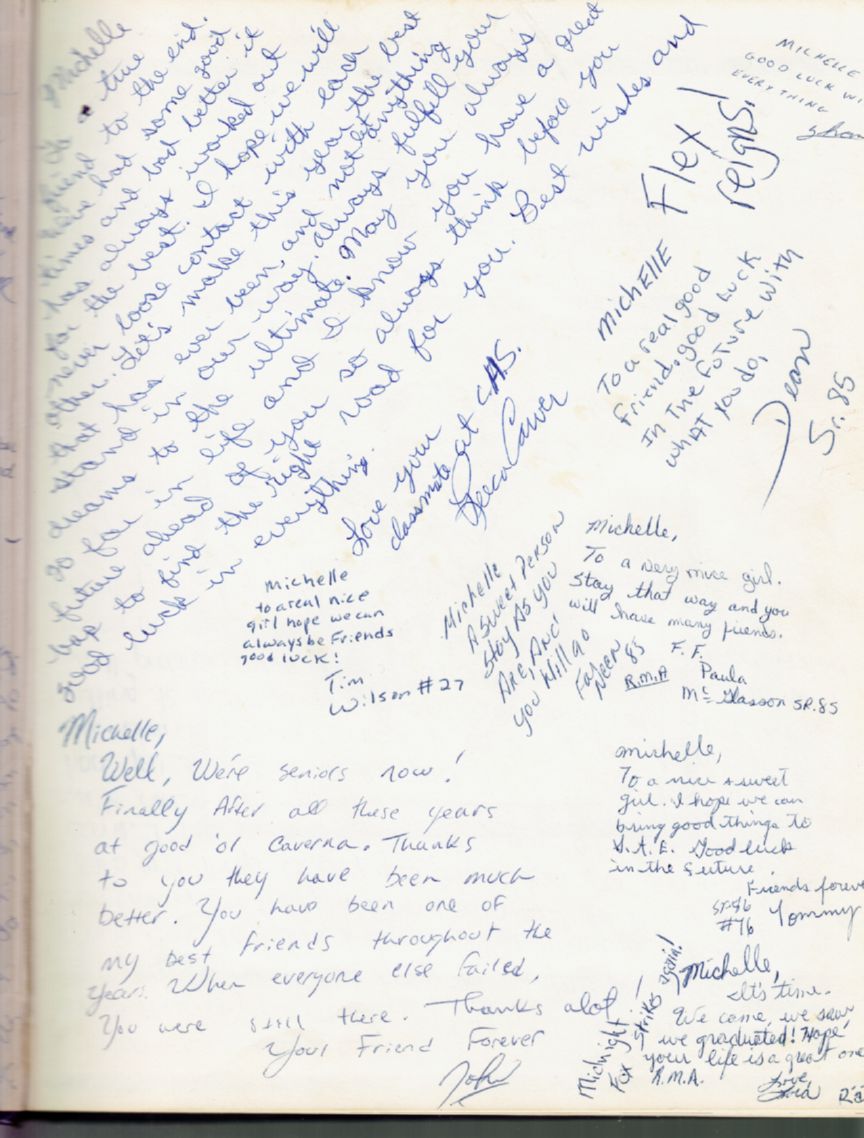 Michelle
To a true
friend to the end.
We've had some good
times and bad better it
has always worked out
for the best. I hope we will
never loose contact with each
other. Let's make this year the best
that has ever been, and not let anything
stand in our way. Always fulfill your
dreams to the ultimate. May you always
go far in life and I know you have a great
future ahead of you so always think before you
leap to find the right road for you. Best wishes and
good luck in everything.
Love your
classmate at CHS.
Carver
MICHELLE
GOOD LUCK WI
EVERYTHING
Shan
Flex
reigns!
MICHELLE
To a real good
friend, good luck
in the future with
what you do,
Dean
Sr. 85
Michelle
to a real nice
girl hope we can
always be Friends
good luck!
Tim
Wilson #27
Michelle
A Sweet Person
Stay As You
Are, And
you Will go
Far
85
Michelle,
To a very nice girl.
Stay that way and you
will have many friends.
F.F.
R.M.A Paula
McGlasson SR.85
Michelle,
Well, We're seniors now!
Finally After all these years
at good 'ol Caverna. Thanks
to you they have been much
better. You have been one of
my best friends throughout the
years. When everyone else failed,
You were still there. Thanks alot!
Your Friend Forever
John
Michelle,
To a nice & sweet
girl. I hope we can
bring good things to
S.A.E. Good luck
in the future.
Friends forever
SR.86
#76 Tommy
Midnight
Fox strikes again!
Michelle,
It's time.
We came, we saw
we graduated! Hope
your life is a great one
R.M.A.
Love,